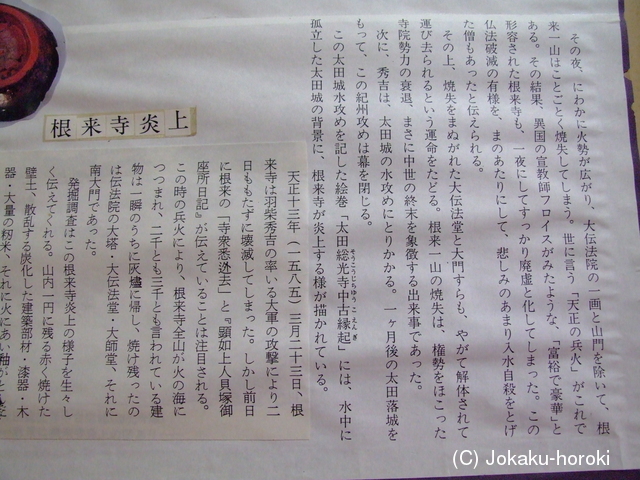 その夜、にわかに火勢が広がり、大伝法院の一画と山門を除いて、根
来一山はことごとく焼失してしまう。世に言う「天正の兵火」がこれで
ある。その結果、異国の宣教師フロイスがみたような、「富裕で豪華」と
形容された根来寺も、一夜にしてすっかり廃虚と化してしまった。この
仏法破滅の有様を、まのあたりにして、悲しみのあまり入水自殺をとげ
た僧もあったと伝えられる。
その上、焼失をまぬがれた大伝法堂と大門すらも、やがて解体されて
運び去られるという運命をたどる。根来一山の焼失は、権勢をほこった
寺院勢力の衰退、まさに中世の終末を象徴する出来事であった。
次に、秀吉は、太田城の水攻めにとりかかる。一ヶ月後の太田落城を
もって、この紀州攻めは幕を閉じる。
この太田城水攻めを記した絵巻「太田総光寺中古縁起」には、水中に
そうこうじちゅうこえんぎ
孤立した太田城の背景に、根来寺が炎上する様が描かれている。
根来寺炎上
天正十三年(一五八五)三月二十三日、根
来寺は羽柴秀吉の率いる大軍の攻撃により二
日ももたずに壊滅してしまった。しかし前日
に根来の「寺衆悉迯去」と『顕如上人貝塚御
座所日記』が伝えていることは注目される。
この時の兵火により、根来寺全山が火の海に
つつまれ、二千とも三千とも言われている建
物は一瞬のうちに灰燼に帰し、焼け残ったの
は伝法院の大塔・大伝法堂・大師堂、それに
南大門であった。
発掘調査はこの根来寺炎上の様子を生々し
く伝えてくれる。山内一円に残る赤く焼けた
壁土、散乱する炭化した建築部材・漆器・木
器・大量の籾米、それに火にあい釉がと
(C) Jokaku-horoki